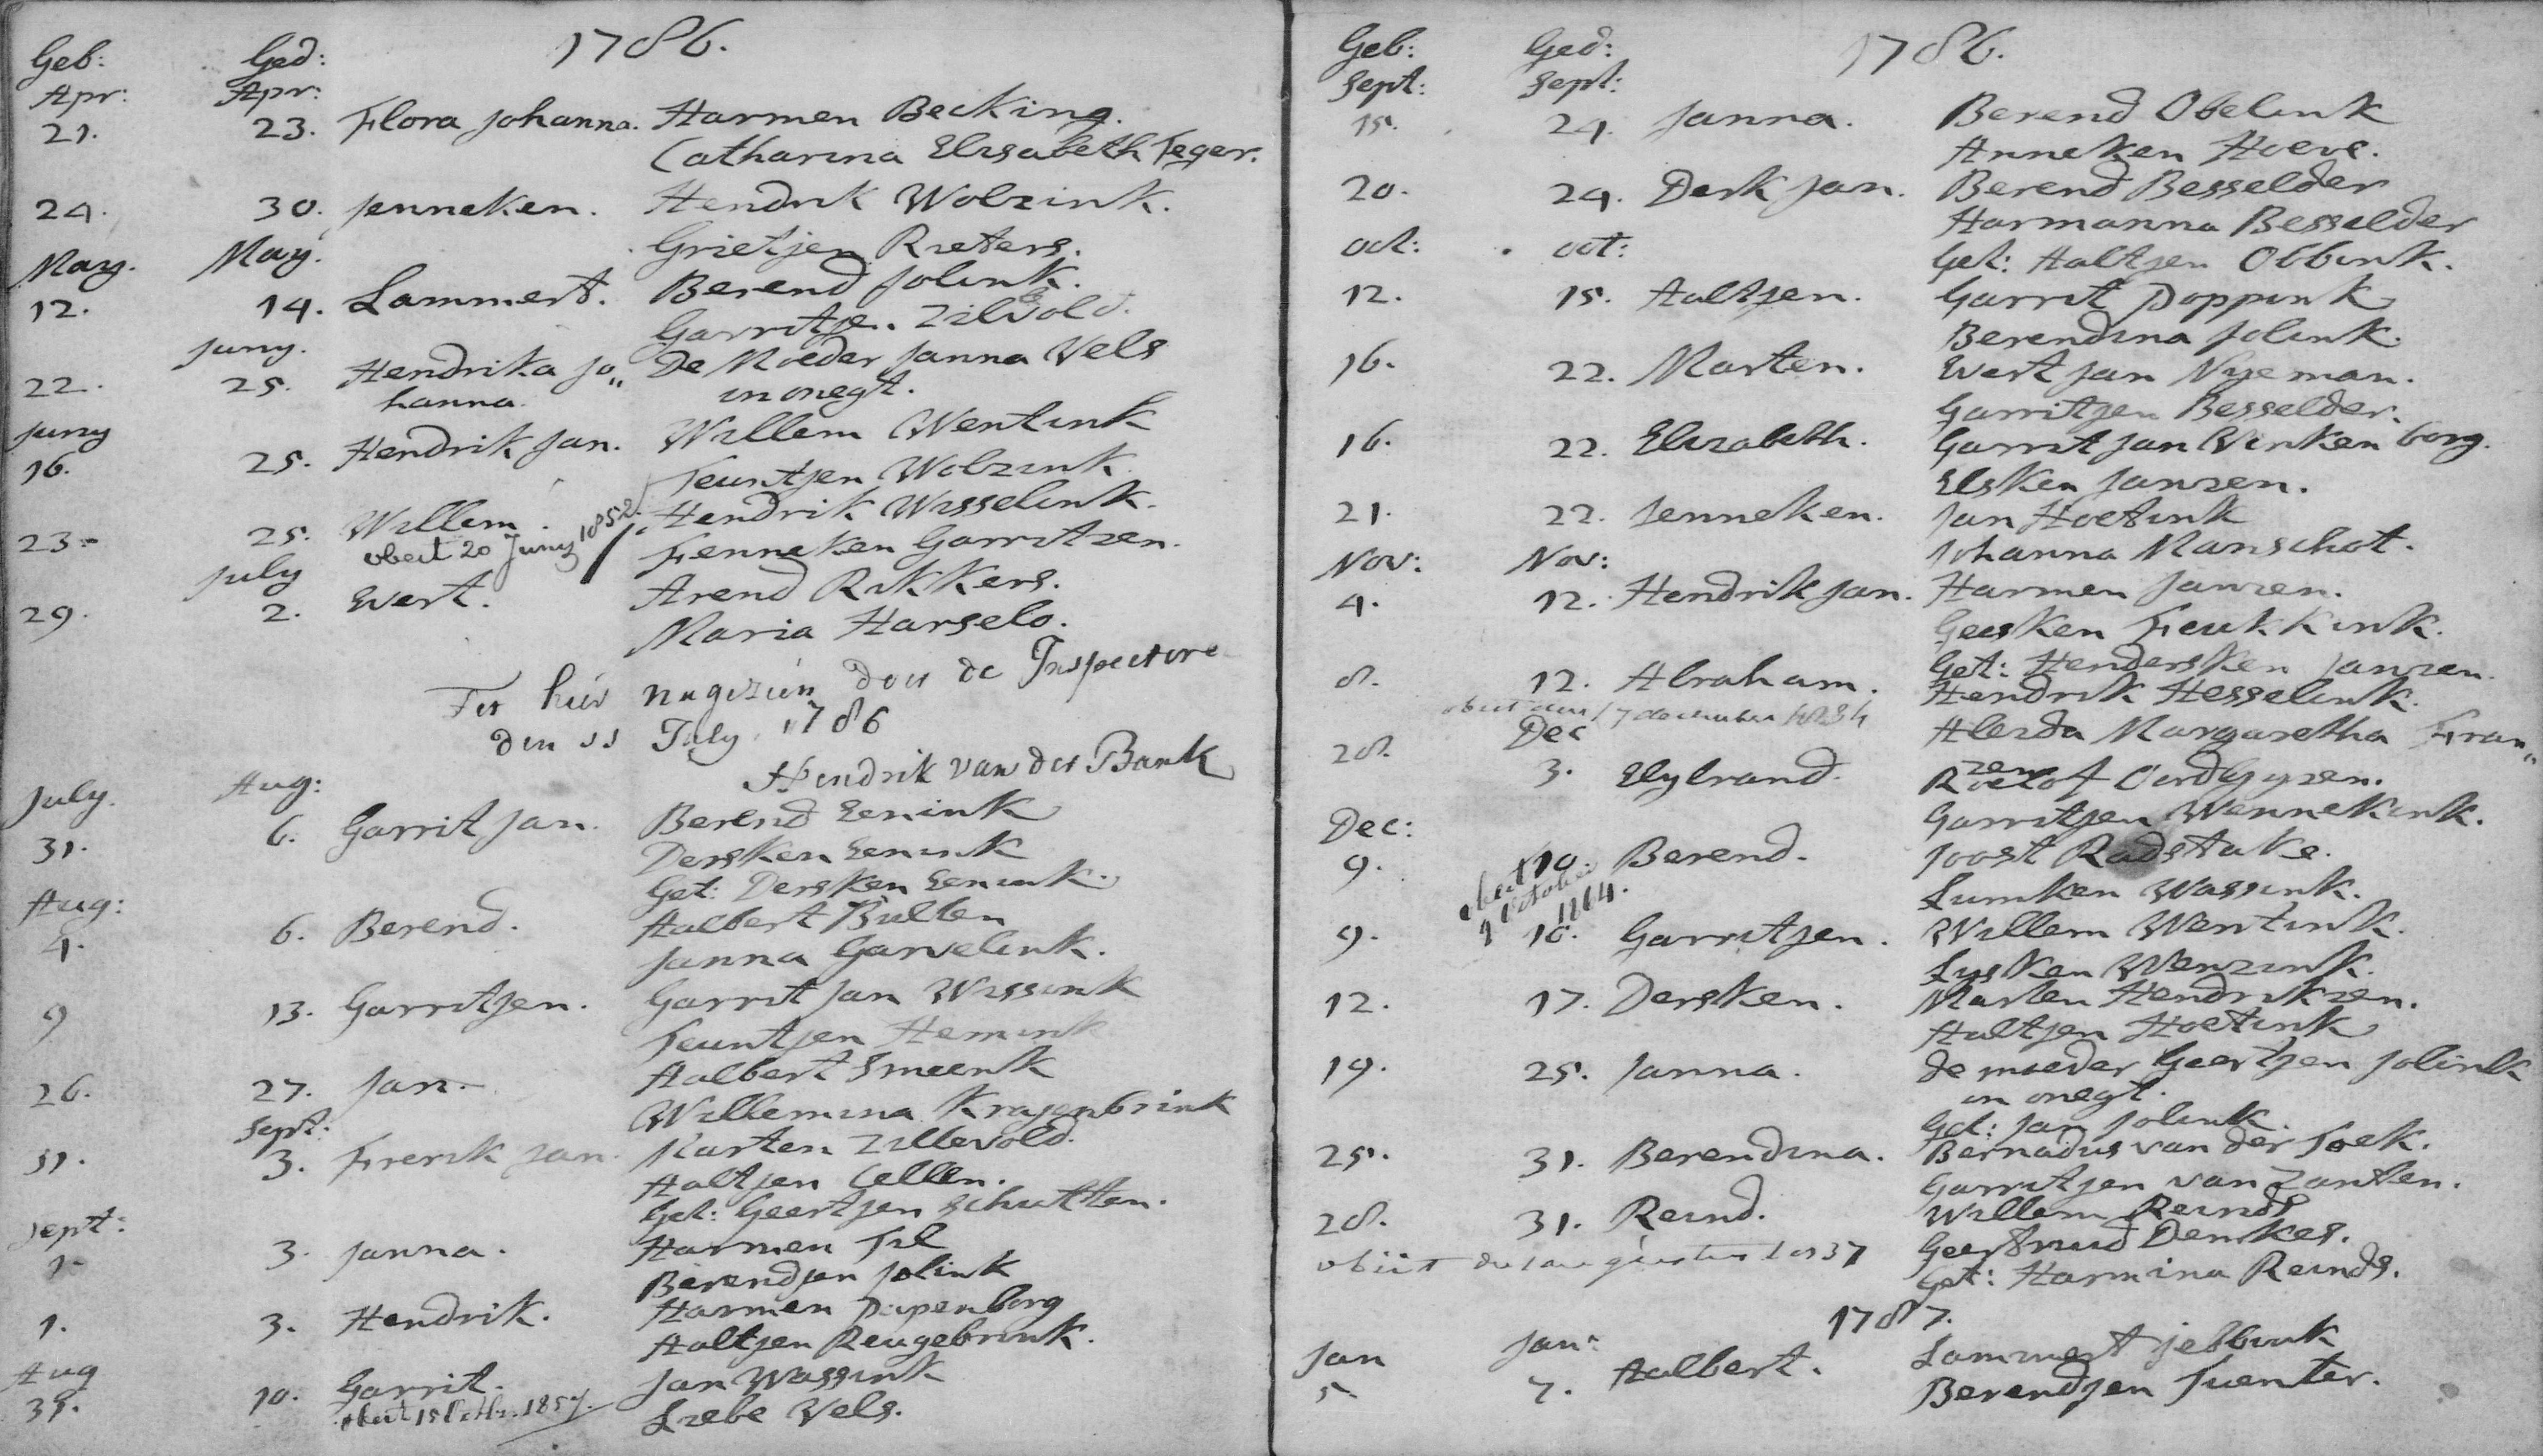 1786.
Geb: Ged:
Apr: Apr:
21. 23. Flora Johanna. Harmen Becking.
Catharina Elisabeth Feger.
24. 30. Jenneken. Hendrik Wolzink.
Grietjen Rieters.
May. May.
12. 14. Lammert. Berend Jolink.
Garritjen Zilvold.
Juny.
22. 25. Hendrika Jo„ De Moeder Janna Vels
hanna. in onegt.
Juny
16. 25. Hendrik Jan. Willem Wentink
Teuntjen Wolzink
23. 25. Willem. Hendrik Wisselink.
obert 20 Juny 1852. Fenneken Garritzen.
July
29. 2. Evert. Arend Rikkers.
Maria Harselo.
Tot hier nagezien door de Inspectore
den 11 July 1786
Hendrik van der Bank
July. Aug:
31. 6. Garrit Jan. Berend Eenink
Dersken Eenink
Get: Dersken Eenink.
Aug:
4. 6. Berend. Aalbert Bulten
Janna Garvelink.
9 13. Garritjen. Garrit Jan Wissink
Teuntjen Hemink
26. 27. Jan. Aalbert Smeenk
Willemina Krajenbrink
Sept:
31. 3. Frerik Jan. Karsten Zillevold.
Aaltjen Cellen.
Get: Geertjen Schutten.
Sept:
1. 3. Janna. Harmen Til
Berendjen Jolink
1. 3. Hendrik. Harmen Papenborg
Aaltjen Reugebrink.
Aug
31. 10. Garrit. Jan Wassink
obert 15 1857. Liebe Vels.
1786.
Geb: Ged:
Sept: Sept:
15. 24. Janna. Berend Obelink
Anneken Hoeve.
20. 24. Derk Jan. Berend Besselder
Harmanna Besselder
Get: Aaltjen Obbink.
Oct: Oct:
12. 15. Aaltjen. Garrit Doppink
Berendina Jolink.
16. 22. Marten. Evert Jan Nijeman.
Garritjen Besselder.
16. 22. Elizabeth. Garrit Jan Vinkenborg.
Elsken Janzen.
21. 22. Jenneken. Jan Hoetink
Johanna Manschot.
Nov: Nov:
4. 12. Hendrik Jan. Harmen Janzen.
Geesken Feukkink.
Get: Hendersken Janzen.
8. 12. Abraham. Hendrik Hesselink.
obiit den 17 december 1834 Aleida Margaretha Fran„
zen
Dec
28. 3. Elybrand. Roelof Oordhyzen.
Garritjen Wennekink.
Dec:
9. 10. Berend. Joost Radstake.
obert 9 October 1864. Lumken Wassink.
9. 10. Garritjen. Willem Wentink.
Lysken Wenzink.
12. 17. Dersken. Marten Hendrikzen.
Aaltjen Hoetink
19. 25. Janna. de moeder Geertjen Jolink
in onegt.
Get: Jan Jolink.
25. 31. Berendina. Bernadus van der Hoek.
Garritjen van Zanten.
28. 31. Reind. Willem Reinds
obiit augustus 1837 Geertruid Denkes.
Get: Harmina Reinds.
1787.
Jan Jan:
5 7. Aalbert. Lammert Jebbink
Berendjen Tuenter.